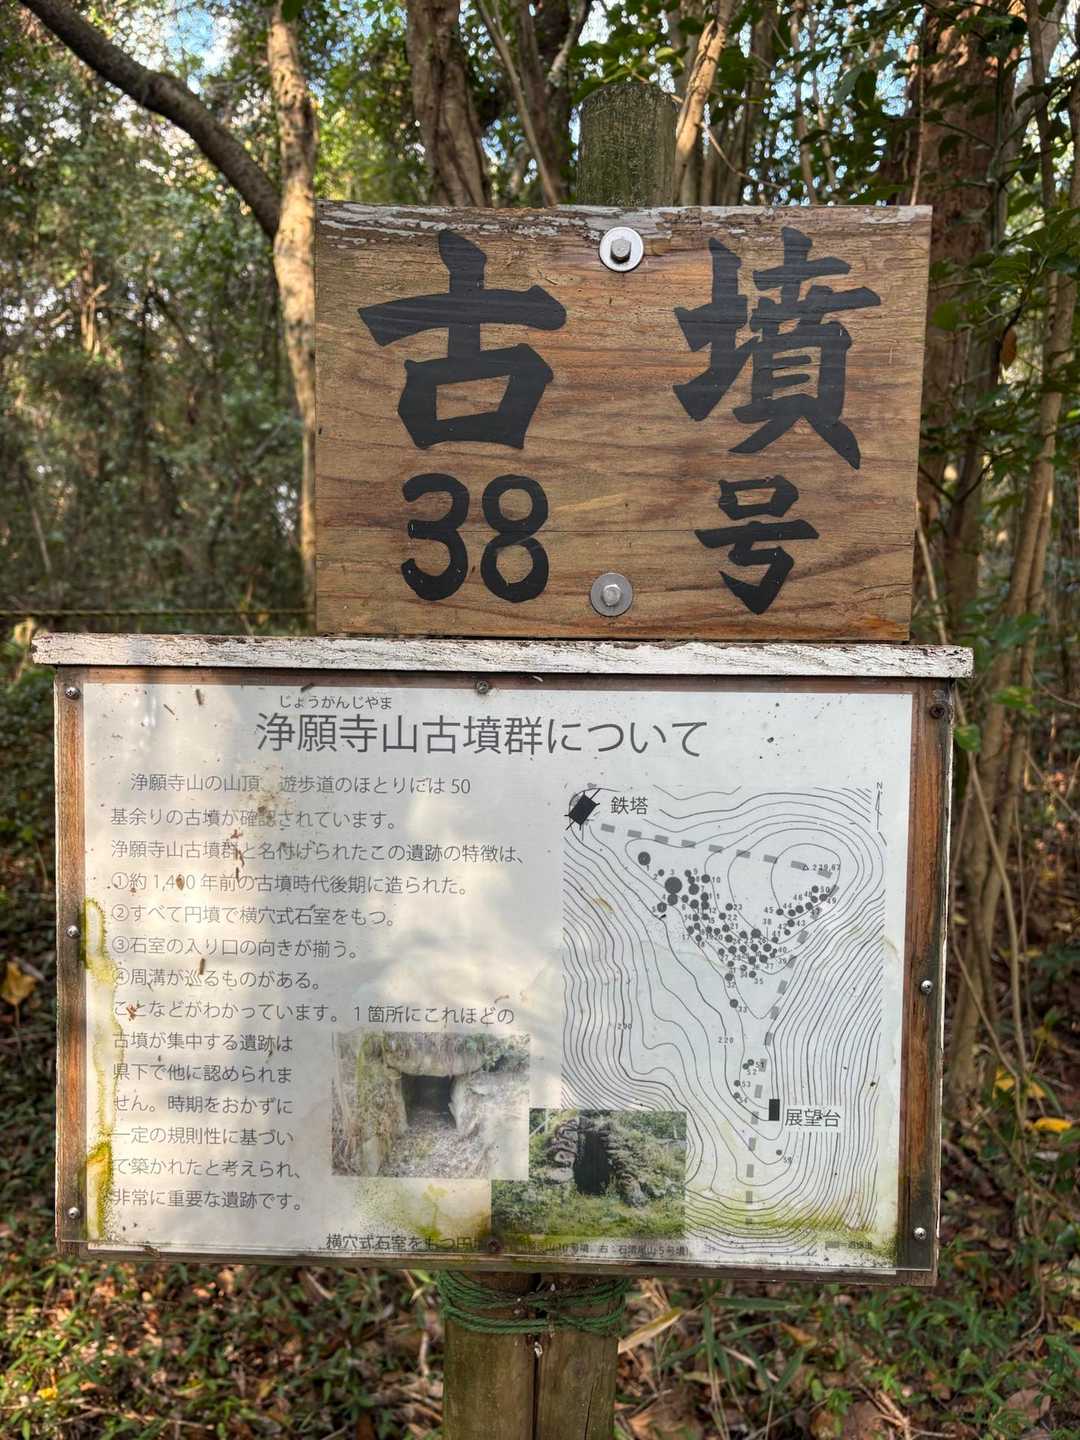 古墳
38号
じょうがんじやま
浄願寺山古墳群について
浄願寺山の山頂、遊歩道のほとりには50
基余りの古墳が確認されています。
浄願寺山古墳群と名付けられたこの遺跡の特徴は、
①約1,400年前の古墳時代後期に造られた。
②すべて円墳で横穴式石室をもつ。
③石室の入り口の向きが揃う。
④周溝が巡るものがある。
ことなどがわかっています。1箇所にこれほどの
古墳が集中する遺跡は
県下で他に認められま
せん。時期をおかずに
一定の規則性に基づい
て築かれたと考えられ、
非常に重要な遺跡です。
鉄塔
N
239.67
220
展望台
横穴式石室をもつ円